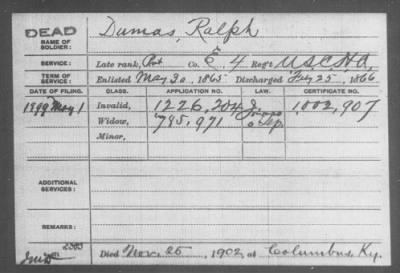 DEAD
Dumas, Ralph
NAME OF SOLDIER:
SERVICE: Late rank, Pvt Co. E, 4 Reg't U.S.C.H.A.
TERM OF SERVICE: Enlisted May 30, 1865 Discharged Feb 25, 1866
DATE OF FILING. CLASS. APPLICATION NO. LAW. CERTIFICATE NO.
1899 May 1 Invalid, 1226,204 1,002,907
Widow, 795,971
Minor,
ADDITIONAL SERVICES:
REMARKS:
Died Nov. 25, 1902, at Columbus, Ky.